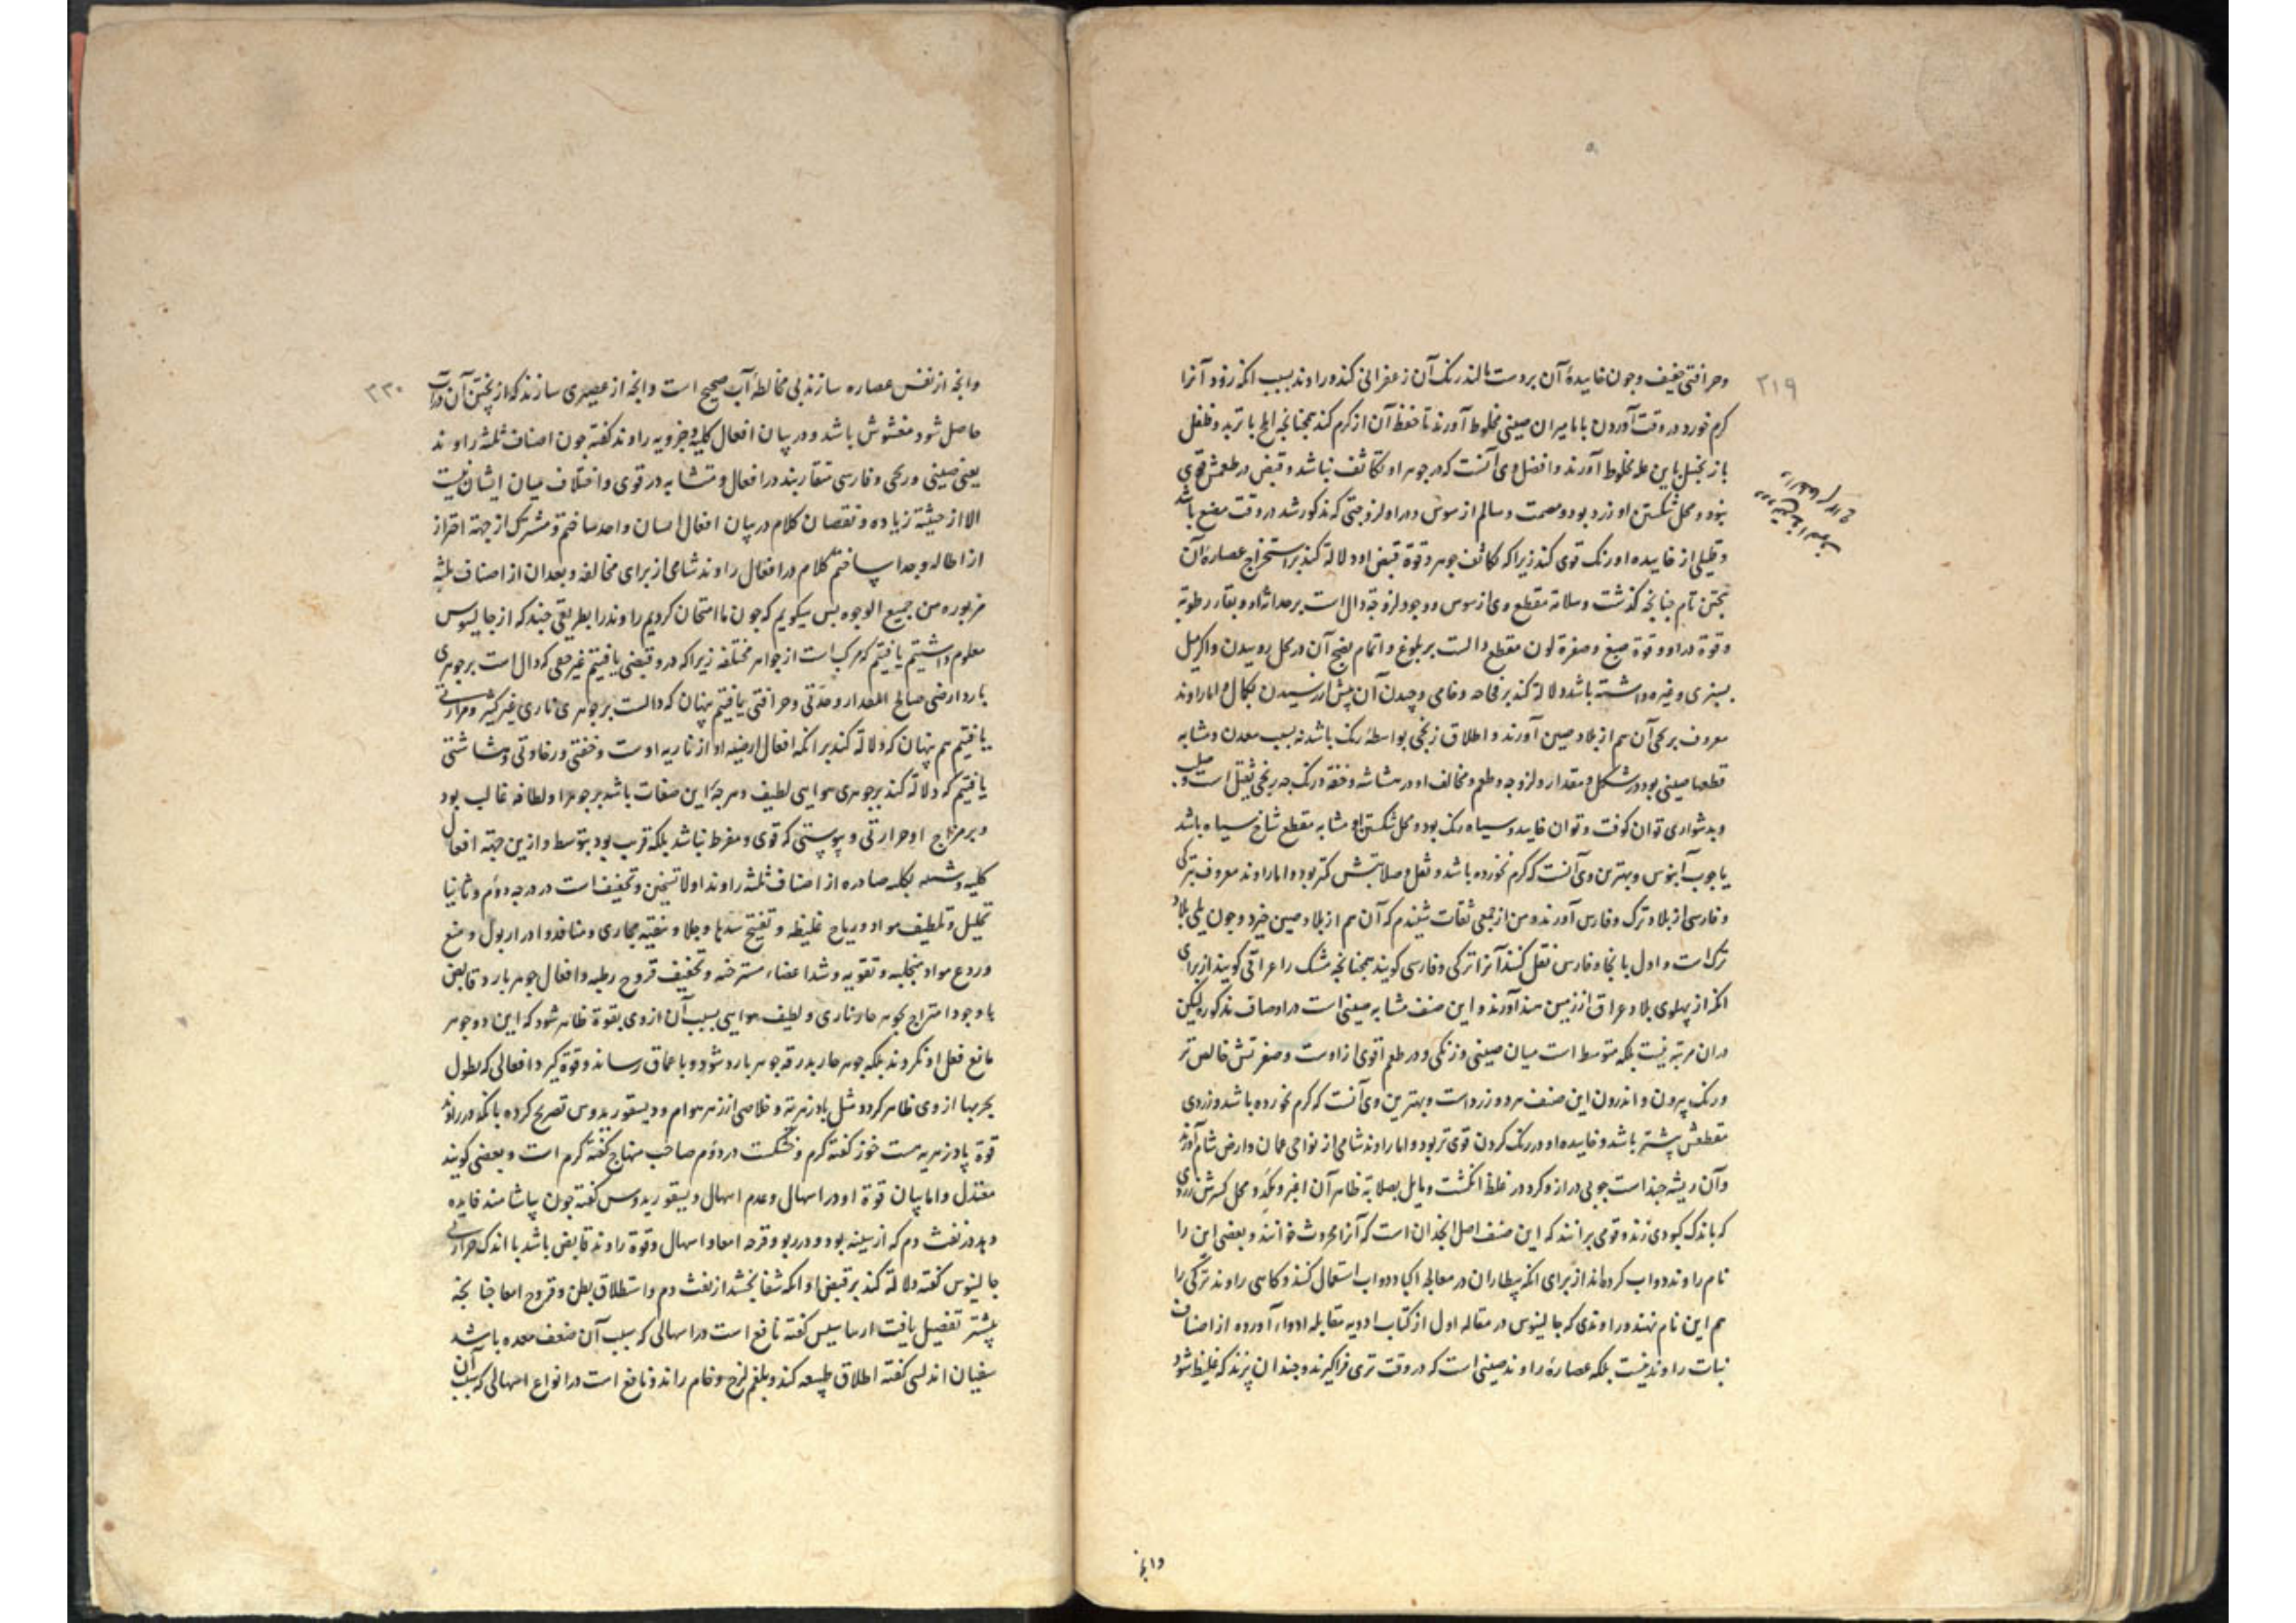 ۲۱۹
وحرافتی خفیف و چون خاییدهٔ آن بر دست مالند رنک آن زعفرانی کند و راوند بسبب انکه زود آنرا
کرم خورد در وقت آوردن با مامیران صینی مخلوط آورند تا حفظ آن از کرم کند همچنانچه اهلیلج با تربد و فلفل
با زنجبیل باین علة مخلوط آورند و افضل وی آنست که در جوهر او تکاثف نباشد و قبض در طعمش قوی
نبود و محل شکستن او زرد بود و مصمت و سالم از سوس و در او لزوجتی که مذکور شد در وقت مضغ باشد
و قلیلی از خاییده او رنک قوی کند زیرا که تکاثف جوهر و قوة قبض او دلالة کند بر استخراج عصارهٔ آن
بپختن تام چنانچه گذشت و سلامة مقطع وی از سوس و وجود لزوجة دال است بر حداثة او و بقاء رطوبة
و قوة در او و قوة صبغ و صفرة لون مقطع دالست بر بلوغ و اتمام نضج آن در محل روییدن و اکر میل
بسبزی و غیره داشته باشد دلالة کند بر فجاجة و خامی و چیدن آن پیش از رسیدن بکمال و اما راوند
معروف بزنجی آن هم از بلاد صین آورند و اطلاق زنجی بواسطهٔ رنک باشد نه بسبب معدن و مشابه
قطعها صینی بود در شکل و مقدار و لزوجه و طعم و مخالف او در هشاشه و خفة و رنک چه زنجی ثقیل است و صلب
و بدشواری توان کوفت و توان خایید و سیاه رنک بود و محل شکستن او مشابه مقطع شاخ سیاه باشد
یا چوب آبنوس و بهترین وی آنست که کرم نخورده باشد و ثقل و صلابتش کمتر بود و اما راوند معروف بترکی
و فارسی از بلاد ترک و فارس آورند و من از جمعی ثقات شنیدم که آن هم از بلاد صین خیزد و چون یلی بلاد
ترک است و اول بانجا و فارس نقل کنند آنرا ترکی و فارسی کویند همچنانچه مشک را عراقی کویند از برای
انکه از پهلوی بلاد عراق از زمین هند آورند و این صنف مشابه صینی است در اوصاف مذکوره لیکن
در آن مرتبه نیست بلکه متوسط است میان صینی و زنکی و در طعم اقوی از اوست و صفرتش خالص تر
و رنک بیرون و اندرون این صنف هر دو زرد است و بهترین وی آنست که کرم نخورده باشد و زردی
مقطعش بیشتر باشد و خاییده او در رنک کردن قوی تر بود و اما راوند شامی از نواحی عمان و ارض شام آورند
وآن ریشه چند است چوبی دراز و کرد در غلظ انکشت و مایل بصلابة ظاهر آن اغبر و کمد و محل کسرش زردی
که باندک کبودی زند و قومی بر انند که این صنف اصل انجدان است که آنرا محروث خوانند و بعضی این را
نام راوند دواب کرده‌اند از برای انکه بیطاران در معالجه اکباد دواب استعمال کنند و کاهی راوند ترکی را
هم این نام نهند و راوندی که جالینوس در مقاله اول از کتاب ادویه مقابله ادواء آورده از اصناف
نبات راوند نیست بلکه عصارهٔ راوند صینی است که در وقت تری فرا کیرند و چندان پزند که غلیظ شود
۳۳۰
وانچه از نفس عصاره سازند بی مخالطهٔ آب صحیح است وانچه از عصیری سازند که از پختن آن در آب
حاصل شود مغشوش باشد و در بیان افعال کلیه و جزویه راوند کفته چون اصناف ثلثه راوند
یعنی صینی و زنجی و فارسی متقاربند در افعال و متشابه در قوی و اختلاف میان ایشان نیست
الا از حیثیة زیاده و نقصان کلام در بیان افعال ایشان واحد ساختم و مشترک از جهة احتراز
از اطاله و جدا ساختم کلام در افعال راوند شامی از برای مخالفة و بعد آن از اصناف ثلثه
مزبوره من جمیع الوجوه پس میکویم که چون ما امتحان کردیم راوند را بطریقی چند که از جالینوس
معلوم داشتیم یافتیم که مرکب است از جواهر مختلفه زیرا که در و قبضی یافتیم غیر خفی که دال است بر جوهری
بارد ارضی صالح المقدار و حدّتی و حرافتی یافتیم پنهان که دالست بر جوهری ناری غیر کثیر و مرارتی
یافتیم هم پنهان که دلالة کند بر انکه افعال ارضیه او از ناریه اوست و خفتی و رخاوتی و هشاشتی
یافتیم که دلالة کند بر جوهری هوایی لطیف و هر چه این صفات باشد بر جوهر او لطافة غالب بود
و بر مزاج او حرارتی و یبوستی که قوی و مفرط نباشد بلکه قریب بود بتوسط و ازین جهة افعال
کلیه و شبیه بکلیه صادره از اصناف ثلثه راوند اولا تسخین و تجفیف است در درجه دوّم و ثانیا
تحلیل و تلطیف مواد و ریاح غلیظه و تفتیح سدها و جلا و تنقیه مجاری و منافذ و ادرار بول و منع
وردع مواد منجلبه و تقویه و شد اعضاء مسترخیه و تجفیف قروح رطبه و افعال جوهر بارد قابض
با وجود امتزاج بجوهر حار ناری و لطیف هوایی بسبب آن از وی بقوة ظاهر شود که این دو جوهر
مانع فعل او نکردند بلکه جوهر حار بدرقه جوهر بارد شود و باعماق رساند و قوة کیرد و افعالی که بطول
تجربها از وی ظاهر کردد مثل بادزهریة و خلاصی از زهر هوام و دیسقوریدوس تصریح کرده بانکه در راوند
قوة پادزهریه هست خوز کفته کرم و خشکست در دوم صاحب منهاج کفته کرم است و بعضی کویند
معتدل و اما بیان قوة او در اسهال و عدم اسهال دیسقوریدوس کفته چون بیاشامند فایده
دهد در نفث دم که از سینه بود و در ربو و قرحه امعا و اسهال و قوة راوند قابض باشد با اندک حرارتی
جالینوس کفته دلالة کند بر قبض او انکه شفا بخشد از نفث دم و استطلاق بطن و قروح امعا چنانچه
پیشتر تفصیل یافت ارماسیس کفته نافع است در اسهالی که سبب آن ضعف معده باشد
سفیان اندلسی کفته اطلاق طبیعه کند و بلغم لزج و خام راند و نافع است در انواع اسهالی که سبب آن